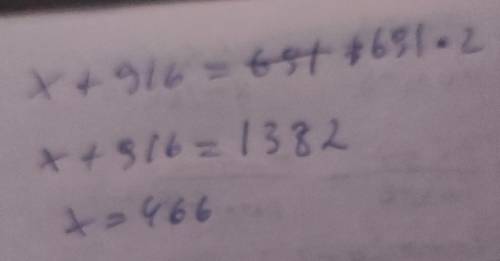 x + 916 = 691 · 2
x + 916 = 1382
x = 466